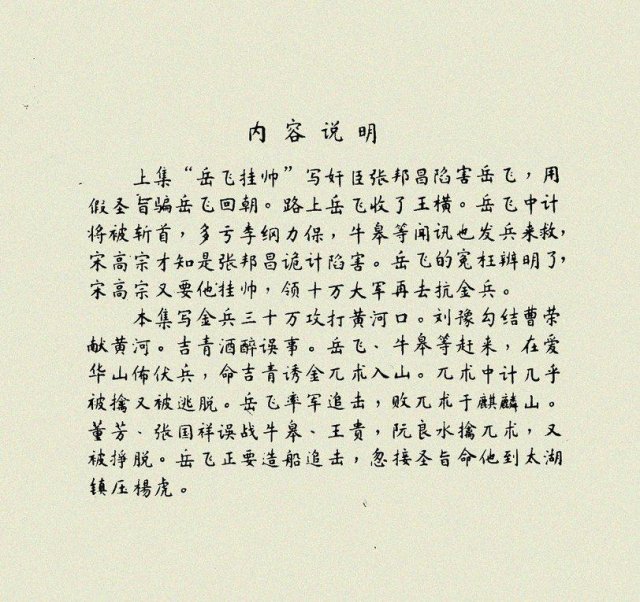 内容说明
上集“岳飞挂帅”写奸臣张邦昌陷害岳飞，用
假圣旨骗岳飞回朝。路上岳飞收了王横。岳飞中计
将被斩首，多亏李纲力保，牛皋等闻讯也发兵来救，
宋高宗才知是张邦昌诡计陷害。岳飞的冤枉辨明了，
宋高宗又要他挂帅，领十万大军再去抗金兵。
本集写金兵三十万攻打黄河口。刘豫勾结曹荣
献黄河。吉青酒醉误事。岳飞、牛皋等赶来，在爱
华山佈伏兵，命吉青诱金兀朮入山。兀朮中计几乎
被擒又被逃脱。岳飞率军追击，败兀朮于麒麟山。
董芳、张国祥误战牛皋、王贵，阮良水擒兀朮，又
被挣脱。岳飞正要造船追击，忽接圣旨命他到太湖
镇压楊虎。